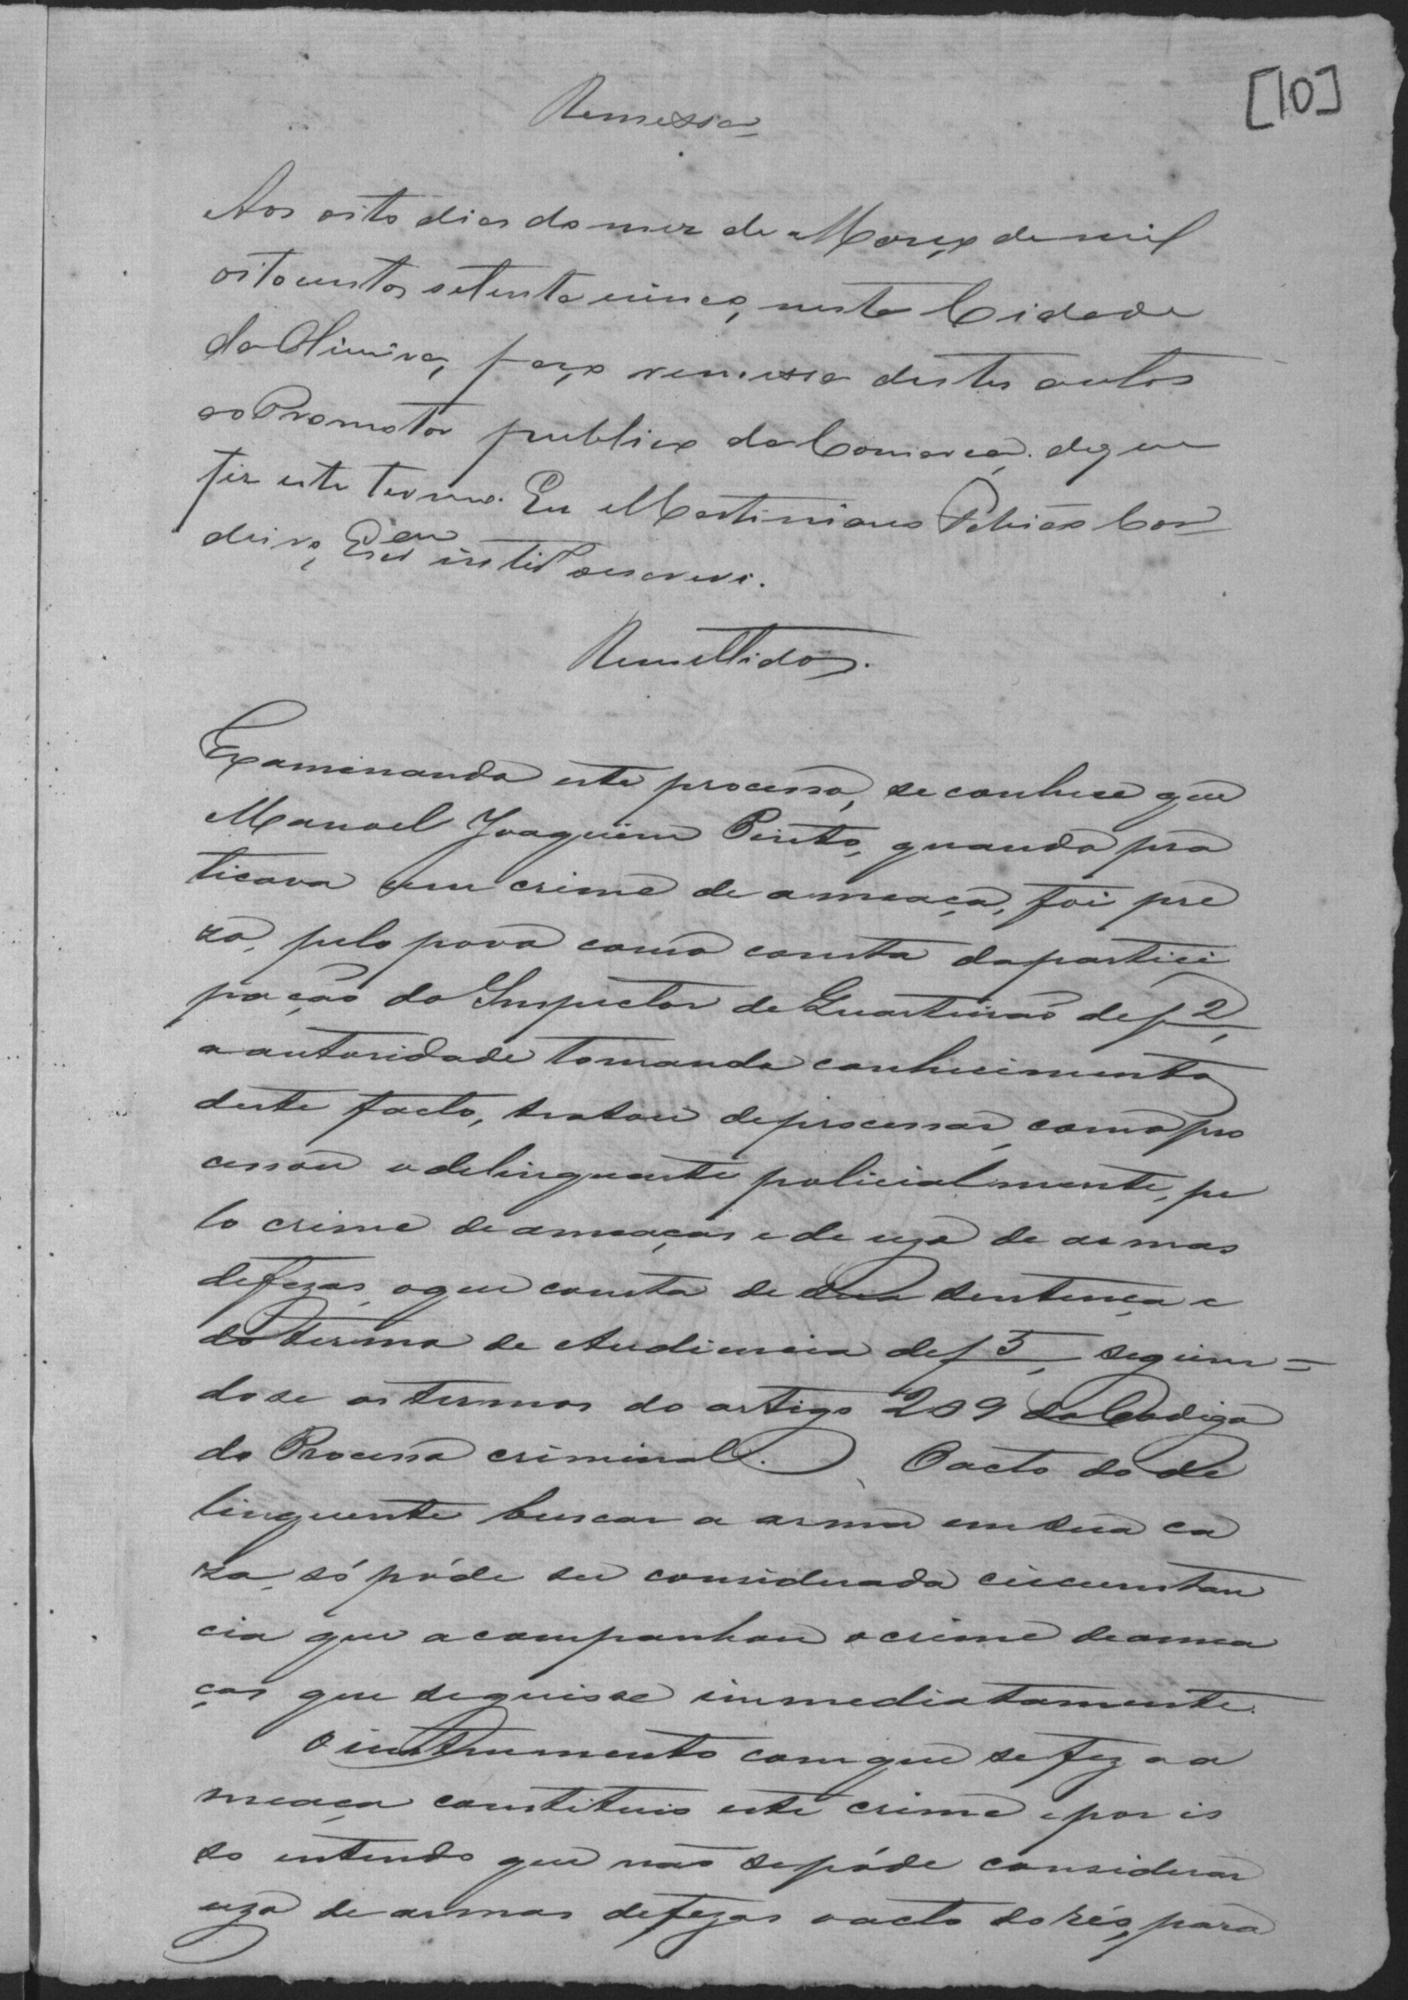 [10]
Remessa
Aos oito dias do mez de Março de mil
oitocentos setenta cinco, nesta Cidade
da Oliveira, faço remessa destes autos
ao Promotor publico da Comarca. de que
fiz este termo. Eu Martiniano Cor=
deiro, Escrivão escrevi.
Remettidos.
Examinando este processo, se conhece que
Manoel Joaquim Pinto, quando pra
ticava um crime de ameaça, foi pre
zo, pelo povo como consta da partici
pação do Inspector de Quarteirão de f 2,
a autoridade tomando conhecimento
deste facto, tratou de processar, como pro
cessou o delinquente policialmente, pe
lo crime de ameaças e de uzo de armas
defezas, o que consta de sua sentença e
do termo de Audiencia de f 5, seguin=
dose os termos do artigo 209 do Codigo
do Processo criminal. O acto do de
linquente buscar a arma em sua ca
za, só póde ser considerada circunstan
cia que acompanhou o crime de amea
ças que seguisse immediatamente.
O instrumento com que se fez a a
meaça constituio este crime e por is
so entendo que não se póde considerar
uzo de armas defezas o acto do réo, para